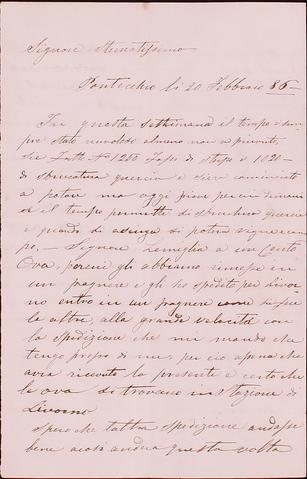 Signore Stimatissimo
Pontecchio li 20 Febbraio 86
In questa settimana il tempo è sem
pre stato nuvoloso almeno non a piovuto,
Si è fatto N° 1250 di stipa e 1020
di quercia e si era cominciato
a potare ma oggi piove perciò dimani
se il tempo permette di quercia
e quando di asciuga si potrà
po, — Signore a un Cento
Ova, perciò gli abbiamo rimesse in
un pagnere e gli ho spedite per Livor
no entro in un pagnere come
le altre, alla grande velocità con
la spedizione che mi mando che
tengo presso di me, perciò apena che
avrà ricevuto la presente è certo che
le ova si trovano in stazione di
Livorno
Spero che l'altra spedizione andasse
bene così andrà questa volta